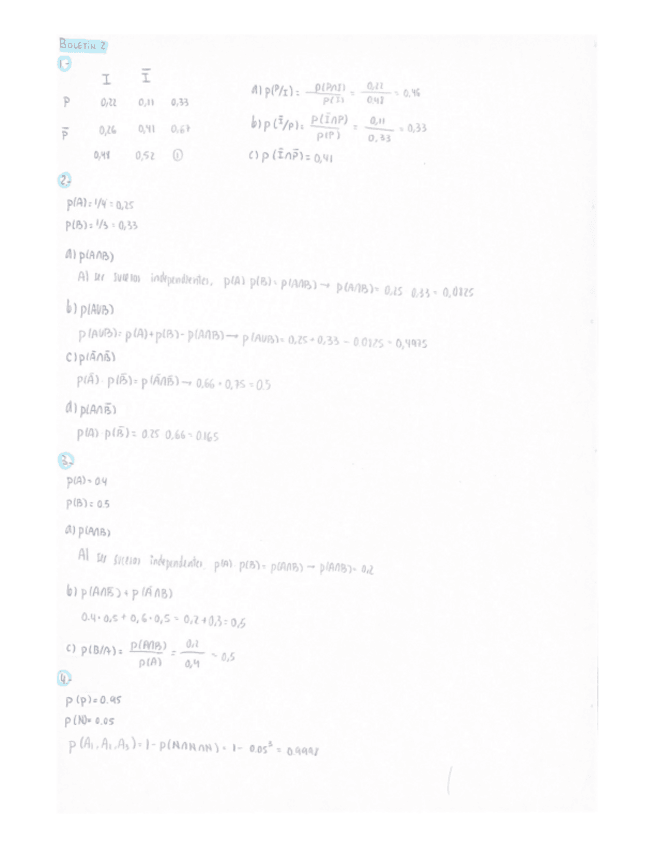 BOLETÍN 2
1.-
I Ī
P 0,22 0,11 0,33
P̄ 0,26 0,41 0,67
0,48 0,52 1
a) p(P/I) = p(P∩I)/p(I) = 0,22/0,48 = 0,46
b) p(Ī/P) = p(Ī∩P)/p(P) = 0,11/0,33 = 0,33
c) p(Ī∩P̄) = 0,41
2.-
p(A) = 1/4 = 0,25
p(B) = 1/3 = 0,33
a) p(A∩B)
Al ser sucesos independientes, p(A) · p(B) = p(A∩B) → p(A∩B) = 0,25 · 0,33 = 0,0825
b) p(A∪B)
p(A∪B) = p(A) + p(B) - p(A∩B) → p(A∪B) = 0,25 + 0,33 - 0.0825 = 0,4975
c) p(Ā∩B̄)
p(Ā) · p(B̄) = p(Ā∩B̄) → 0,66 · 0,75 = 0.5
d) p(A∩B̄)
p(A) · p(B̄) = 0.25 · 0,66 = 0.165
3.-
p(A) = 0.4
p(B) = 0.5
a) p(A∩B)
Al ser sucesos independientes, p(A) · p(B) = p(A∩B) → p(A∩B) = 0,2
b) p(A∩B̄) + p(Ā∩B)
0.4 · 0,5 + 0,6 · 0,5 = 0,2 + 0,3 = 0,5
c) p(B/A) = p(A∩B)/p(A) = 0,2/0,4 = 0,5
4.-
p(P) = 0.95
p(N) = 0.05
p(A₁, A₂, A₃) = 1 - p(N∩N∩N) = 1 - 0.05³ = 0.9998